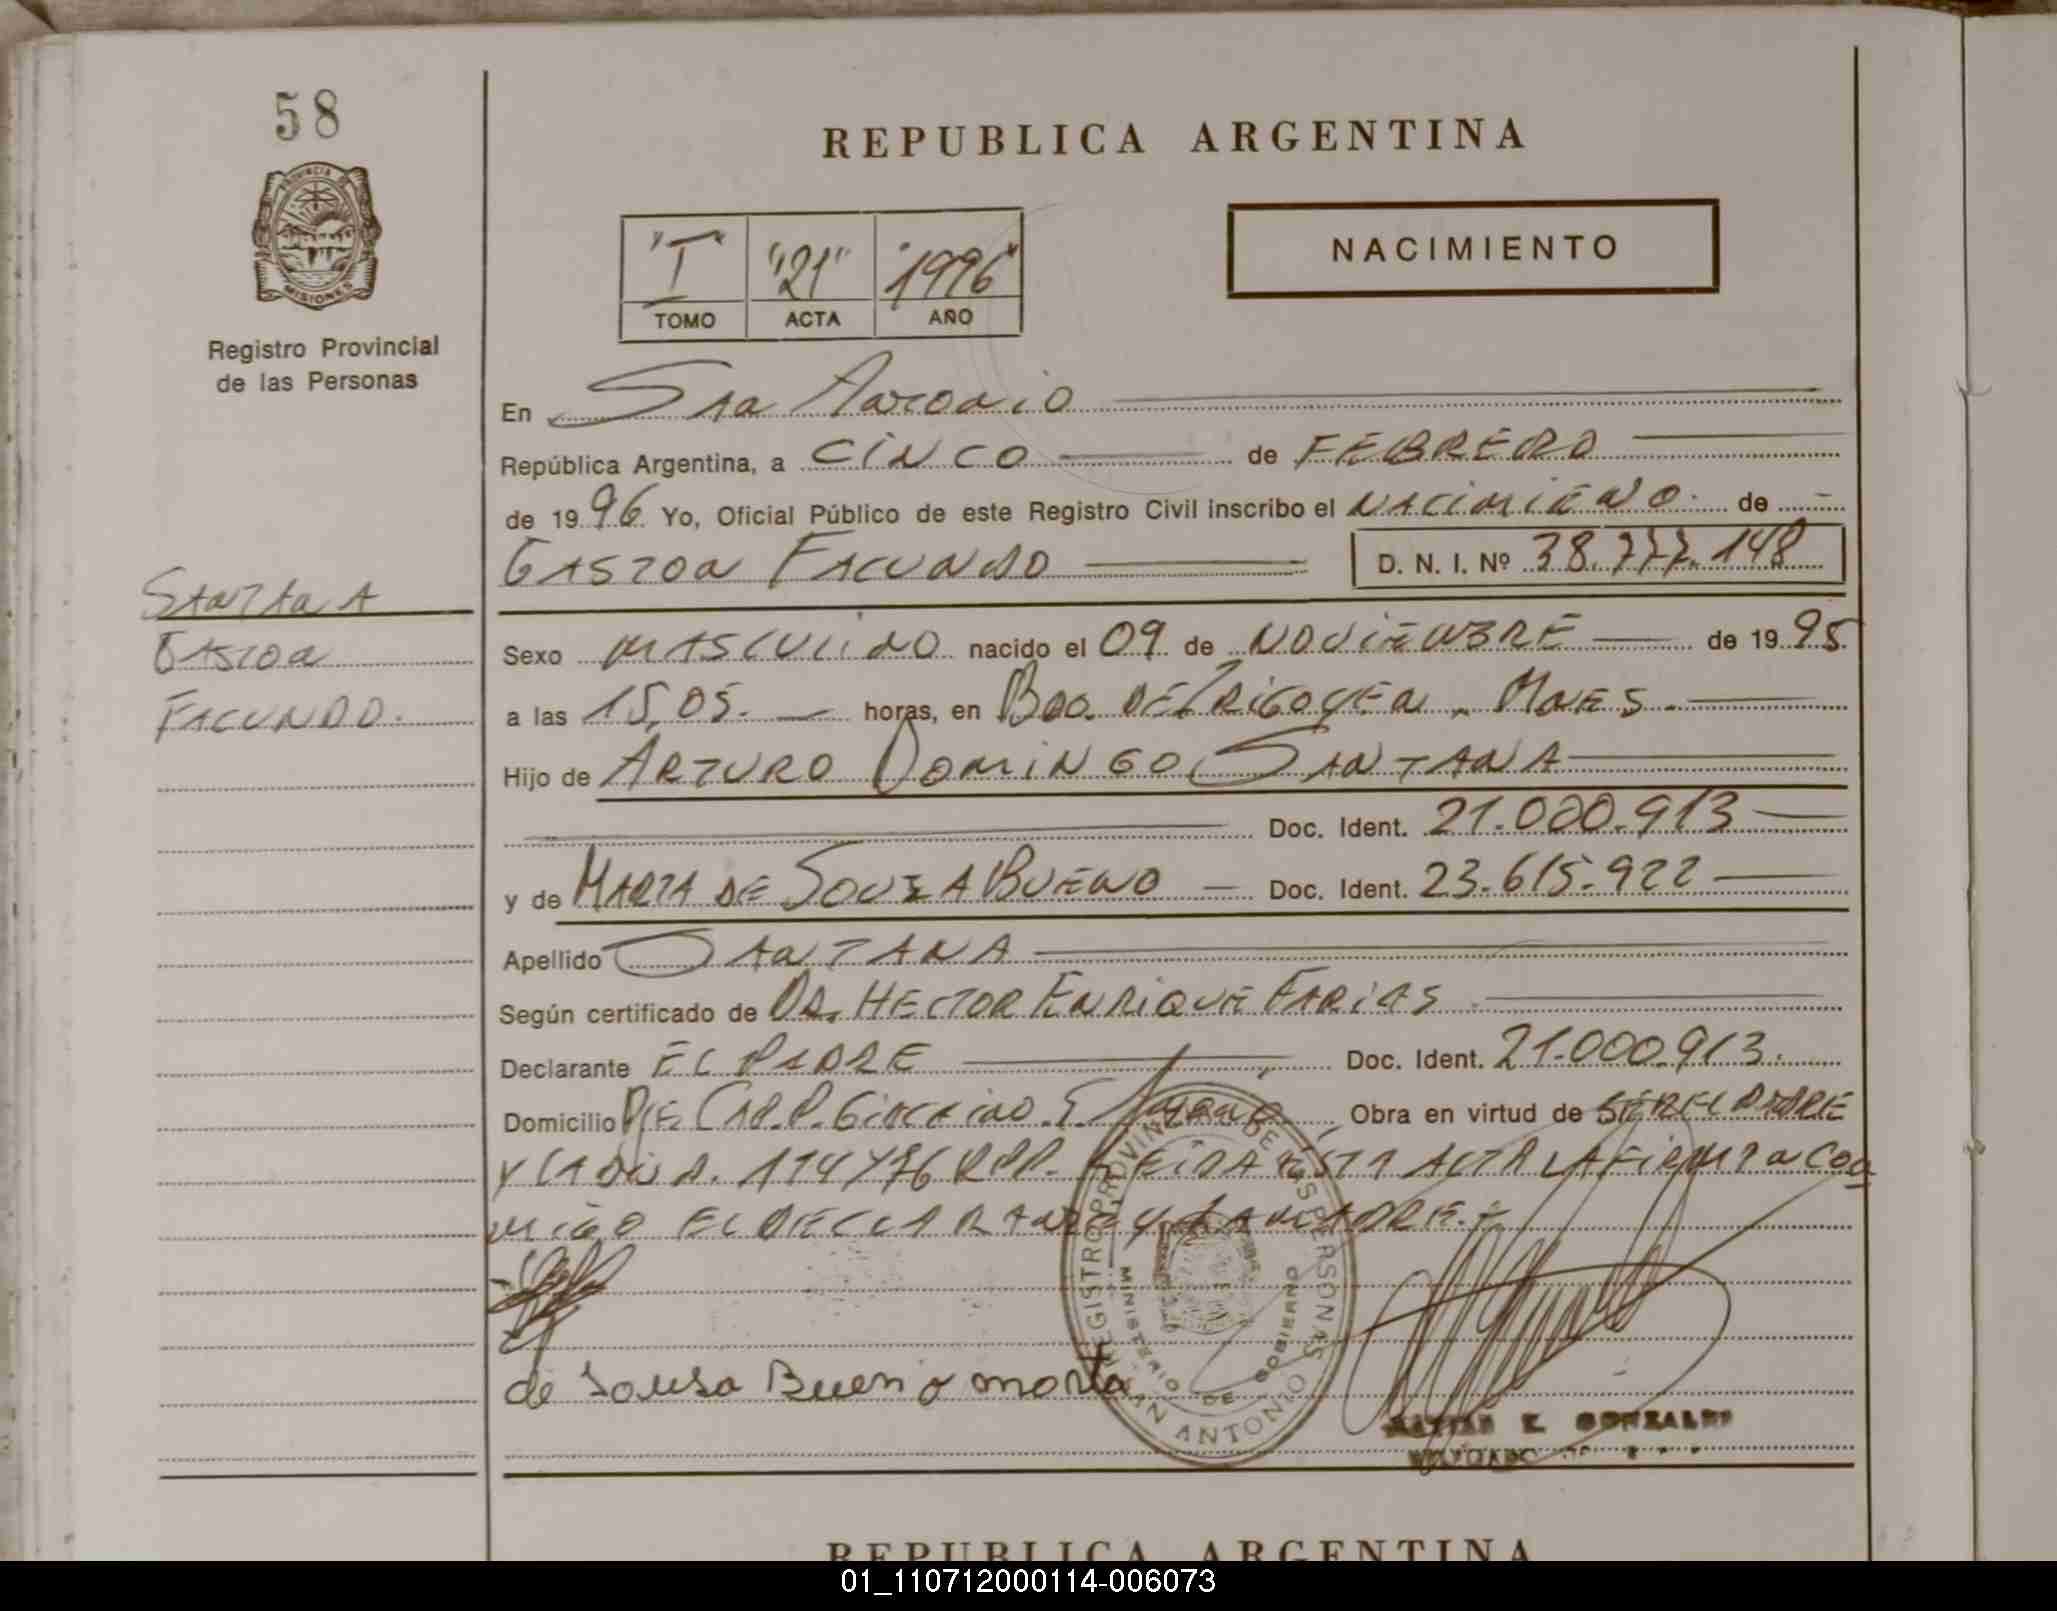 58
PROVINCIA DE
MISIONES
Registro Provincial
de las Personas
REPUBLICA ARGENTINA
NACIMIENTO
"I" "21" "1996"
TOMO ACTA AÑO
En San Antonio
República Argentina, a CINCO de FEBRERO
de 1996 Yo, Oficial Público de este Registro Civil inscribo el NACIMIENO de
GASTON FACUNDO D. N. I. Nº 38.777.148
SANTANA
GASTON
FACUNDO.
Sexo MASCULINO nacido el 09 de NOVIEMBRE de 1995
a las 15,05. horas, en BDO. DE IRIGOYEN, MNES.
Hijo de ARTURO DOMINGO SANTANA
Doc. Ident. 21.000.913
y de MARTA DE SOUZA BUENO Doc. Ident. 23.615.922
Apellido SANTANA
Según certificado de DR. HECTOR ENRIQUE FARIAS
Declarante EL PADRE Doc. Ident. 21.000.913.
Domicilio Obra en virtud de SER EL PADRE
ESTA ACTA LA FIRMAN CON
MIGO EL DECLARANTE Y LA MADRE.
de Sousa Bueno marta
REGISTRO PROVINCIAL DE LAS PERSONAS
MINISTERIO DE GOBIERNO
SAN ANTONIO
E. GONZALEZ
REPUBLICA ARGENTINA
01_110712000114-006073